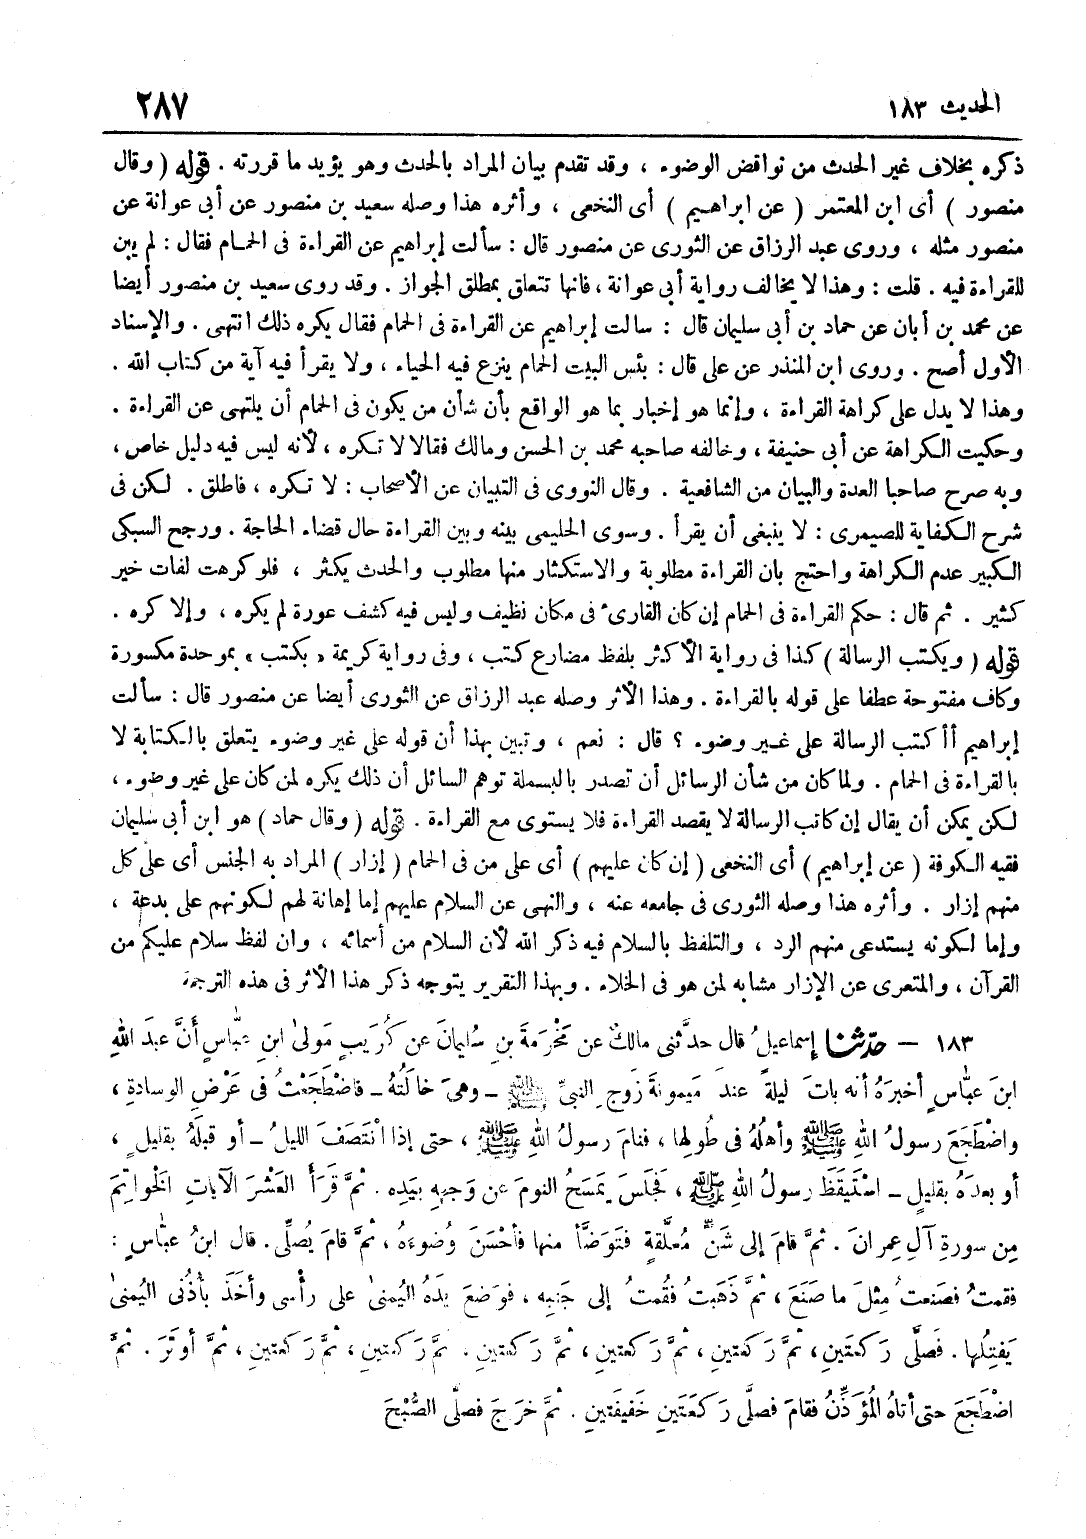 الحديث ١٨٣
٢٨٧
ذكره بخلاف غير الحدث من نواقض الوضوء ، وقد تقدم بيان المراد بالحدث وهو يؤيد ما قررته . قوله ( وقال
منصور ) أى ابن المعتمر ( عن ابراهيم ) أى النخعى ، وأثره هذا وصله سعيد بن منصور عن أبى عوانة عن
منصور مثله ، وروى عبد الرزاق عن الثورى عن منصور قال : سألت إبراهيم عن القراءة فى الحمام فقال : لم يبن
للقراءة فيه . قلت : وهذا لا يخالف رواية أبى عوانة ، فانها تتعلق بمطلق الجواز . وقد روى سعيد بن منصور أيضا
عن محمد بن أبان عن حماد بن أبى سليمان قال : سالت إبراهيم عن القراءة فى الحمام فقال يكره ذلك انتهى . والإسناد
الأول أصح . وروى ابن المنذر عن على قال : بئس البيت الحمام ينزع فيه الحياء ، ولا يقرأ فيه آية من كتاب الله .
وهذا لا يدل على كراهة القراءة ، وإنما هو إخبار بما هو الواقع بأن شأن من يكون فى الحمام أن يلتهى عن القراءة .
وحكيت الكراهة عن أبى حنيفة ، وخالفه صاحبه محمد بن الحسن ومالك فقالا لا تكره ، لأنه ليس فيه دليل خاص ،
وبه صرح صاحبا العدة والبيان من الشافعية . وقال النووى فى التبيان عن الأصحاب : لا تكره ، فاطلق . لكن فى
شرح الكفاية للصيمرى : لا ينبغى أن يقرأ . وسوى الحليمى بينه وبين القراءة حال قضاء الحاجة . ورجح السبكى
الكبير عدم الكراهة واحتج بان القراءة مطلوبة والاستكثار منها مطلوب والحدث يكثر ، فلو كرهت لفات خير
كثير . ثم قال : حكم القراءة فى الحمام إن كان القارئ فى مكان نظيف وليس فيه كشف عورة لم يكره ، وإلا كره .
قوله ( ويكتب الرسالة ) كذا فى رواية الأكثر بلفظ مضارع كتب ، وفى رواية كريمة « بكتب » بموحدة مكسورة
وكاف مفتوحة عطفا على قوله بالقراءة . وهذا الأثر وصله عبد الرزاق عن الثورى أيضا عن منصور قال : سألت
إبراهيم أأكتب الرسالة على غير وضوء ؟ قال : نعم ، وتبين بهذا أن قوله على غير وضوء يتعلق بالكتابة لا
بالقراءة فى الحمام . ولما كان من شأن الرسائل أن تصدر بالبسملة توهم السائل أن ذلك يكره لمن كان على غير وضوء ،
لكن يمكن أن يقال إن كاتب الرسالة لا يقصد القراءة فلا يستوى مع القراءة . قوله ( وقال حماد ) هو ابن أبى سليمان
فقيه الكوفة ( عن إبراهيم ) أى النخعى ( إن كان عليهم ) أى على من فى الحمام ( إزار ) المراد به الجنس أى على كل
منهم إزار . وأثره هذا وصله الثورى فى جامعه عنه ، والنهى عن السلام عليهم إما إهانة لهم لكونهم على بدعة ،
وإما لكونه يستدعى منهم الرد ، والتلفظ بالسلام فيه ذكر الله لأن السلام من أسمائه ، وان لفظ سلام عليكم من
القرآن ، والمتعرى عن الإزار مشابه لمن هو فى الخلاء . وبهذا التقرير يتوجه ذكر هذا الأثر فى هذه الترجمة
١٨٣ – حدّثنا إسماعيلُ قال حدَّثنى مالكٌ عن مَخْرَمَةَ بنِ سُليمانَ عن كُرَيبٍ مَولىٰ ابنِ عبّاسٍ أَنَّ عبدَ اللهِ
ابنَ عبّاسٍ أخبرَهُ أنه باتَ ليلةً عندَ مَيمونةَ زَوجِ النبىِّ ﷺ – وهىَ خالَتُه – فاضْطَجَعْتُ فى عَرْضِ الوسادةِ ،
واضْطَجَعَ رسولُ اللهِ ﷺ وأهلُه فى طُولِها ، فنامَ رسولُ اللهِ ﷺ ، حتى إذا انْتَصَفَ الليلُ – أو قبلَهُ بقليلٍ ،
أو بعدَهُ بقليلٍ – اسْتَيقَظَ رسولُ اللهِ ﷺ ، فجَلَسَ يَمسَحُ النومَ عن وَجهِهِ بيَدِه . ثمَّ قَرَأَ العَشْرَ الآياتِ الخواتِمَ
مِن سورةِ آلِ عِمرانَ . ثمَّ قامَ إلى شَنٍّ مُعلَّقةٍ فتَوَضَّأَ منها فأحْسَنَ وُضوءَهُ ، ثمَّ قامَ يُصلِّى . قال ابنُ عبّاسٍ :
فقمتُ فصَنعتُ مِثلَ ما صَنَعَ ، ثمَّ ذَهَبتُ فقُمتُ إلى جَنبِه ، فوَضَعَ يدَهُ اليُمنىٰ على رأسى وأخَذَ بأُذُنى اليُمنىٰ
يَفتِلُها . فصَلَّى رَكعَتَينِ ، ثمَّ رَكعتينِ ، ثمَّ رَكعتينِ ، ثمَّ رَكعتينِ . ثمَّ رَكعتينِ ، ثمَّ رَكعتينِ ، ثمَّ أوتَرَ . ثمَّ
اضْطَجَعَ حتى أتاهُ المُؤَذِّنُ فقامَ فصلَّى رَكعَتَينِ خَفيفَتينِ . ثمَّ خرَجَ فصلَّى الصُّبْحَ